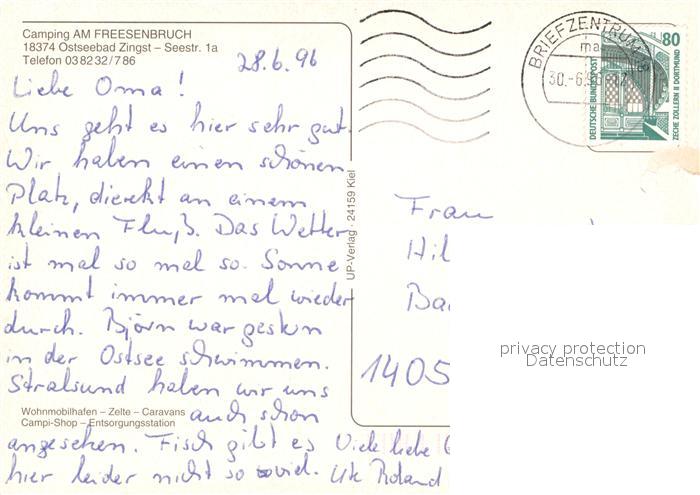 Camping AM FREESENBRUCH
18374 Ostseebad Zingst – Seestr. 1a
Telefon 03 82 32 / 7 86
28.6.96
Liebe Oma!
Uns geht es hier sehr gut.
Wir haben einen schönen
Platz, dierekt an einem
kleinen Fluß. Das Wetter
ist mal so mal so. Sonne
kommt immer mal wieder
durch. Björn war gestern
in der Ostsee schwimmen.
Stralsund haben wir uns
auch schon
angesehen. Fisch gibt es
hier leider nicht so viel.
Viele liebe
Ute Roland
Wohnmobilhafen – Zelte – Caravans
Campi-Shop – Entsorgungsstation
UP-Verlag · 24159 Kiel
BRIEFZENTRUM
30.-6.96
80
DEUTSCHE BUNDESPOST
ZECHE ZOLLERN II DORTMUND
Frau
Hil
1405
privacy protection
Datenschutz